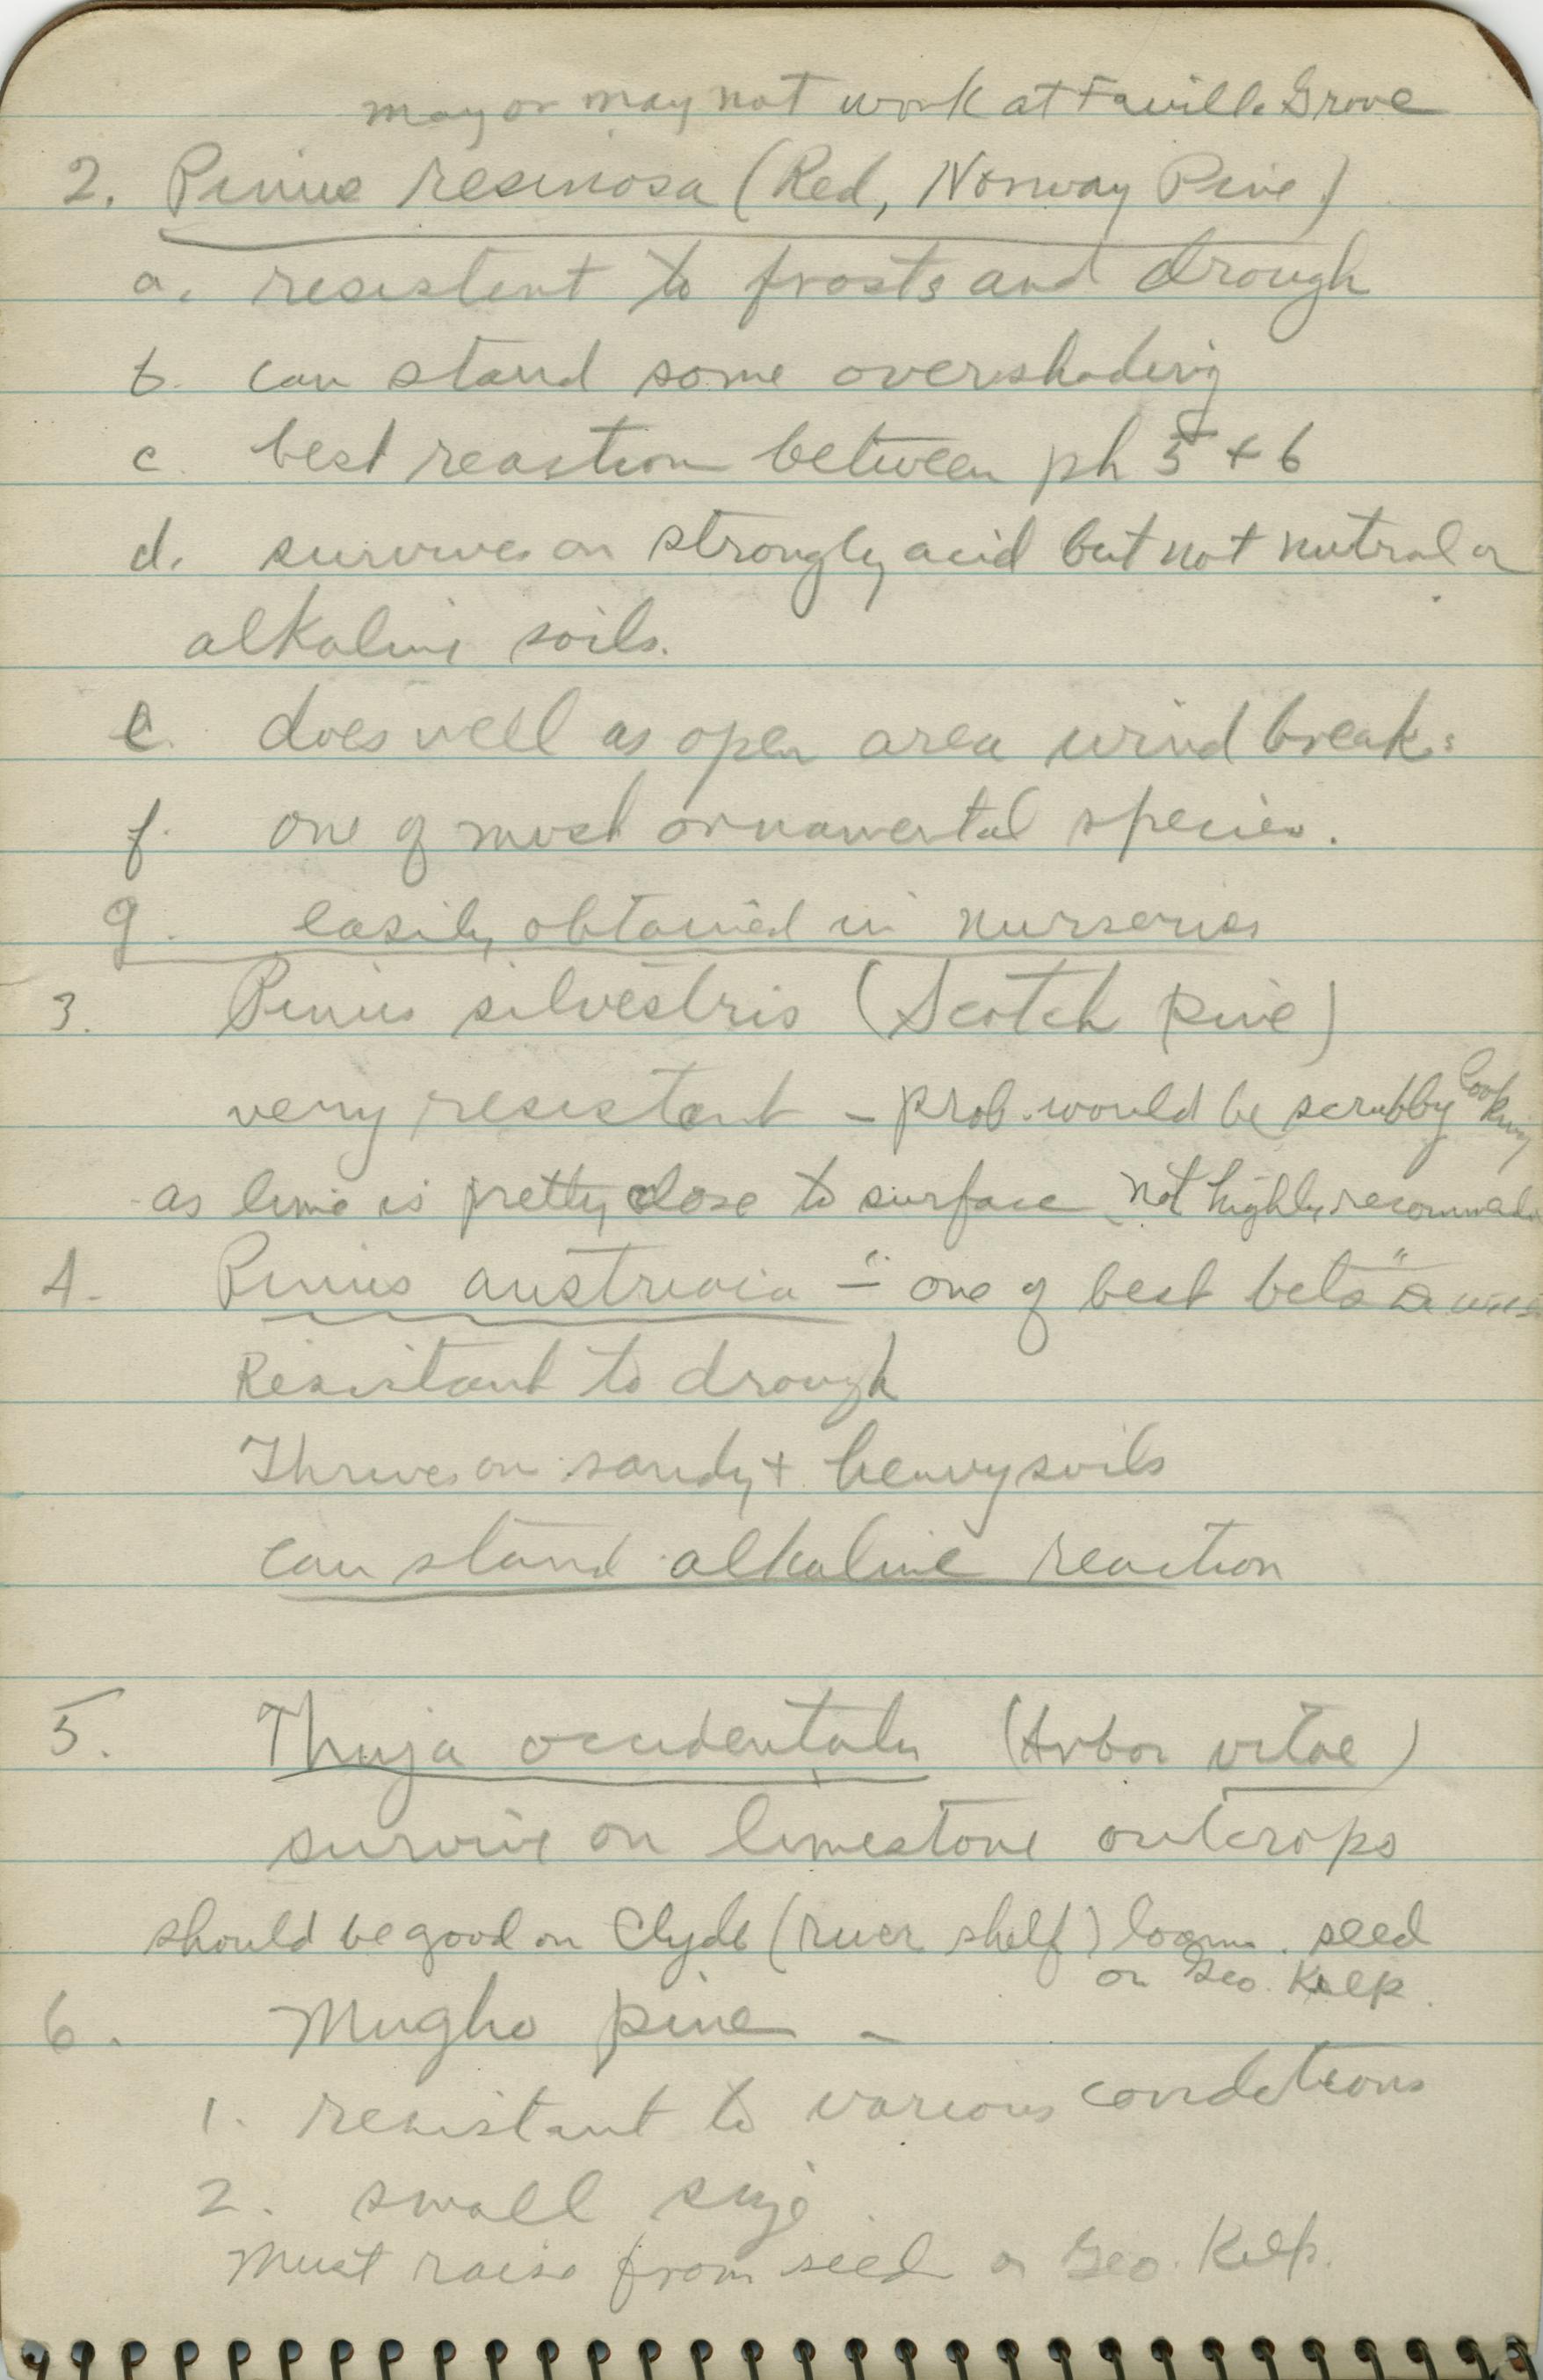 may or may not work at Faville Grove
2. Pinus resinosa (Red, Norway Pine)
a. resistent to frosts and drough
b. can stand some overshading
c. best reaction between ph 5 + 6
d. survives on strongly acid but not nutral or
alkaline soils.
e. does well as open area wind breaks
f. one of most ornamental species.
g. easily obtained in nurseries
3. Pinus silvestris (Scotch pine)
very resistant - prob. would be scrubby looking
as lime is pretty close to surface not highly recommended
4. Pinus austriaca - "one of best bets"
Resistant to drough
Thrives on sandy + heavy soils
can stand alkaline reaction
5. Thuja occidentalis (Arbor vitae)
survive on limestone outcrops
should be good on Clyde (river shelf) loams. seed
or Geo. Kelp.
6. Mugho pine -
1. resistant to various conditions
2. small size
Must raise from seed or Geo. Kelp.